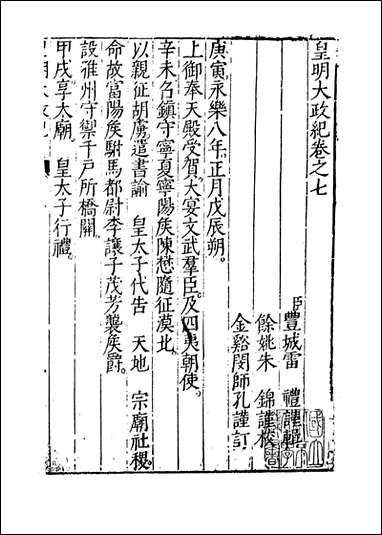 皇明大政紀卷之七
臣豐城雷 禮謹輯
餘姚朱 錦謹校
金谿閔師孔謹訂
庚寅永樂八年正月戊辰朔。
上御奉天殿受賀。大宴文武羣臣。及四夷朝使。
辛未召鎮守寧夏寧陽侯陳懋隨征漠北。
以親征胡虜遣書諭 皇太子代告 天地 宗廟社稷。
命故富陽侯駙馬都尉李讓子茂芳襲侯爵。
設碓州守禦千戶所橋關
甲戌享太廟 皇太子行禮。